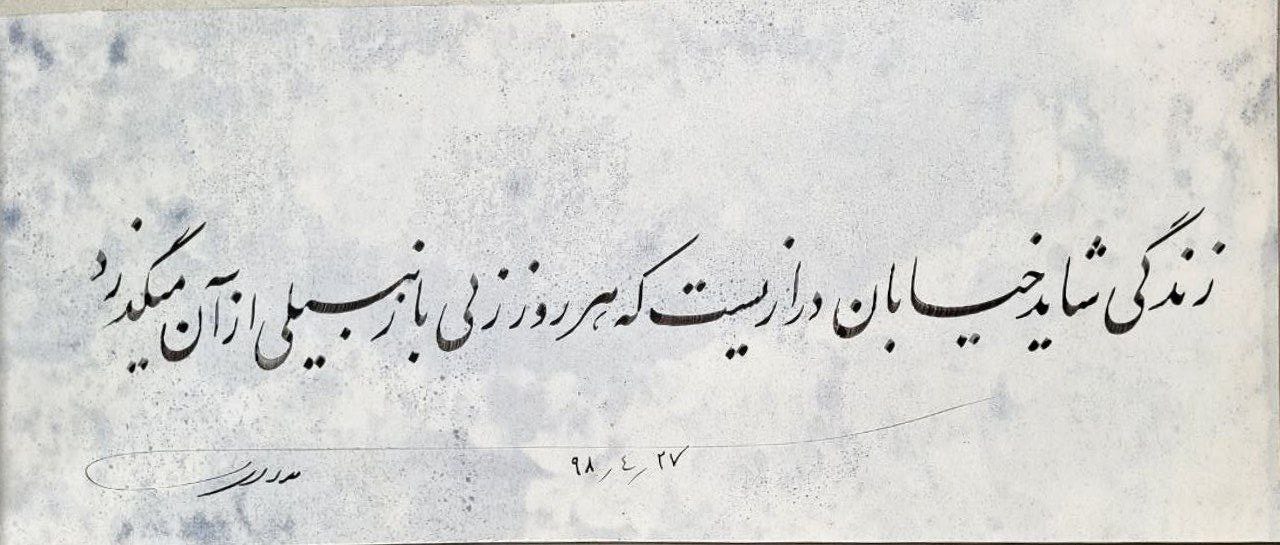 زندگی شاید خیابان درازیست که هر روز زنی با زنبیلی از آن میگذرد
۹۸٫۴٫۲۷